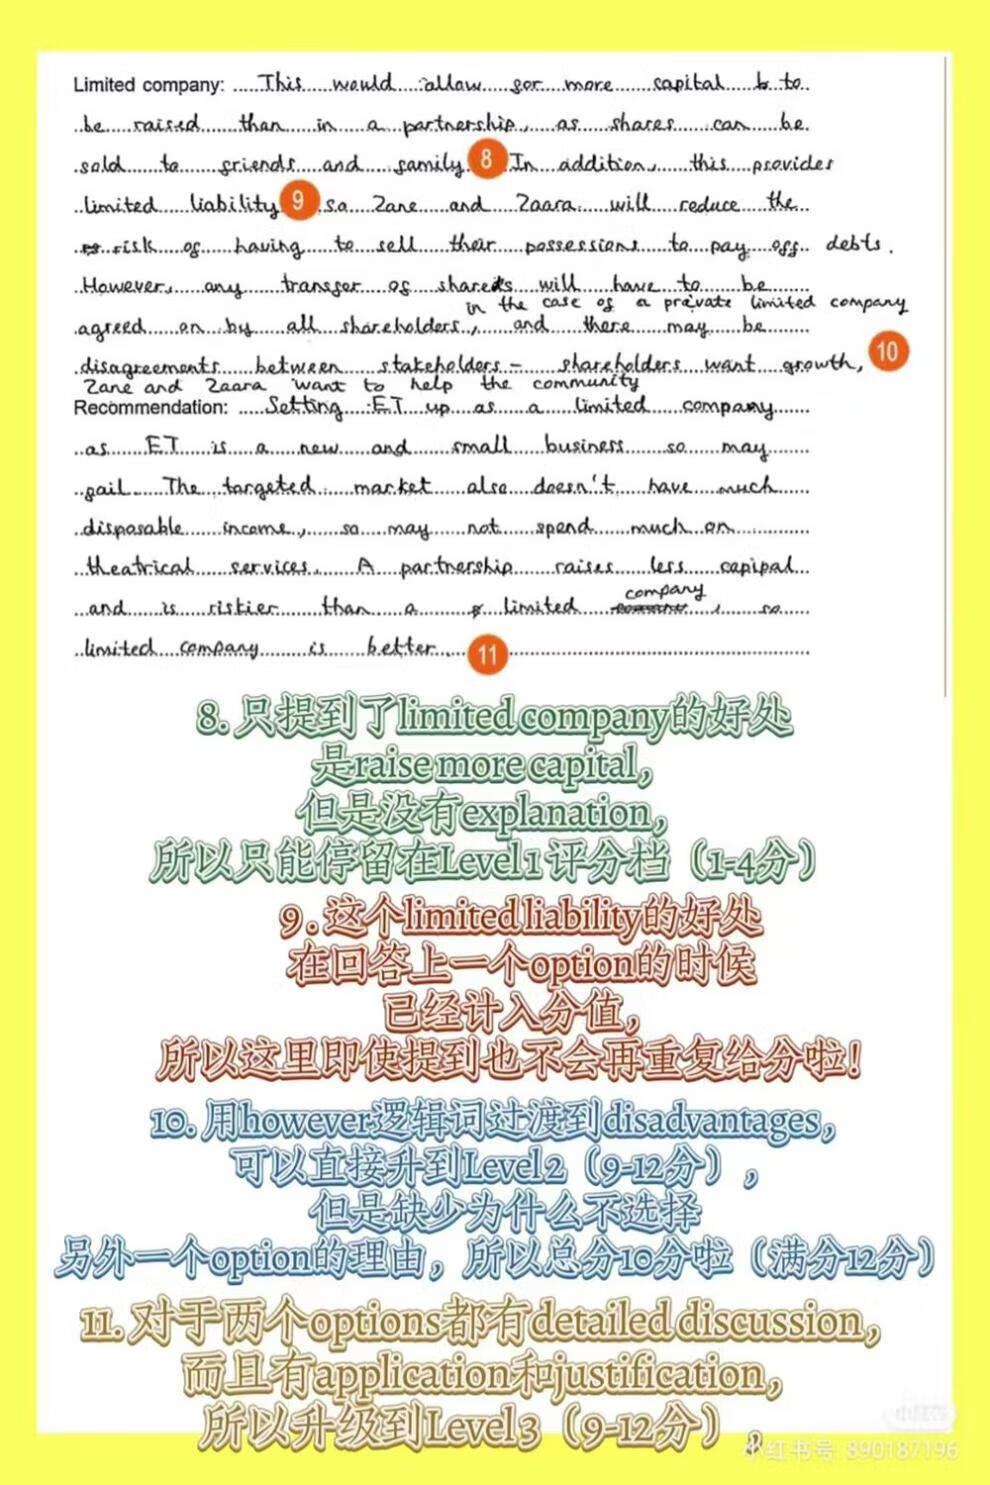 Limited company: This would allow for more capital to
be raised than in a partnership, as shares can be
sold to friends and family 8 In addition, this provides
limited liability 9 so Zane and Zaara will reduce the
risk of having to sell their possessions to pay off debts.
However, any transfer of shares will have to be
in the case of a private limited company
agreed on by all shareholders, and there may be
disagreements between stakeholders - shareholders want growth, 10
Zane and Zaara want to help the community
Recommendation: Setting ET up as a limited company
as ET is a new and small business so may
fail. The targeted market also doesn't have much
disposable income, so may not spend much on
theatrical services. A partnership raises less capipal
and is riskier than a limited company, so
limited company is better. 11
8. 只提到了limited company的好处
是raise more capital,
但是没有explanation,
所以只能停留在Level 1 评分档（1-4分）
9. 这个limited liability的好处
在回答上一个option的时候
已经计入分值,
所以这里即使提到也不会再重复给分啦!
10. 用however逻辑词过渡到disadvantages,
可以直接升到Level2（9-12分）,
但是缺少为什么不选择
另外一个option的理由, 所以总分10分啦（满分12分）
11. 对于两个options都有detailed discussion,
而且有application和justification,
所以升级到Level3（9-12分）。
小红书
小红书号: 890187196